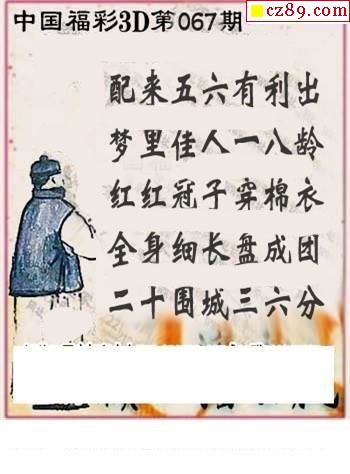 cz89.com
中国福彩3D第067期
配来五六有利出
梦里佳人一八龄
红红冠子穿棉衣
全身细长盘成团
二十围城三六分